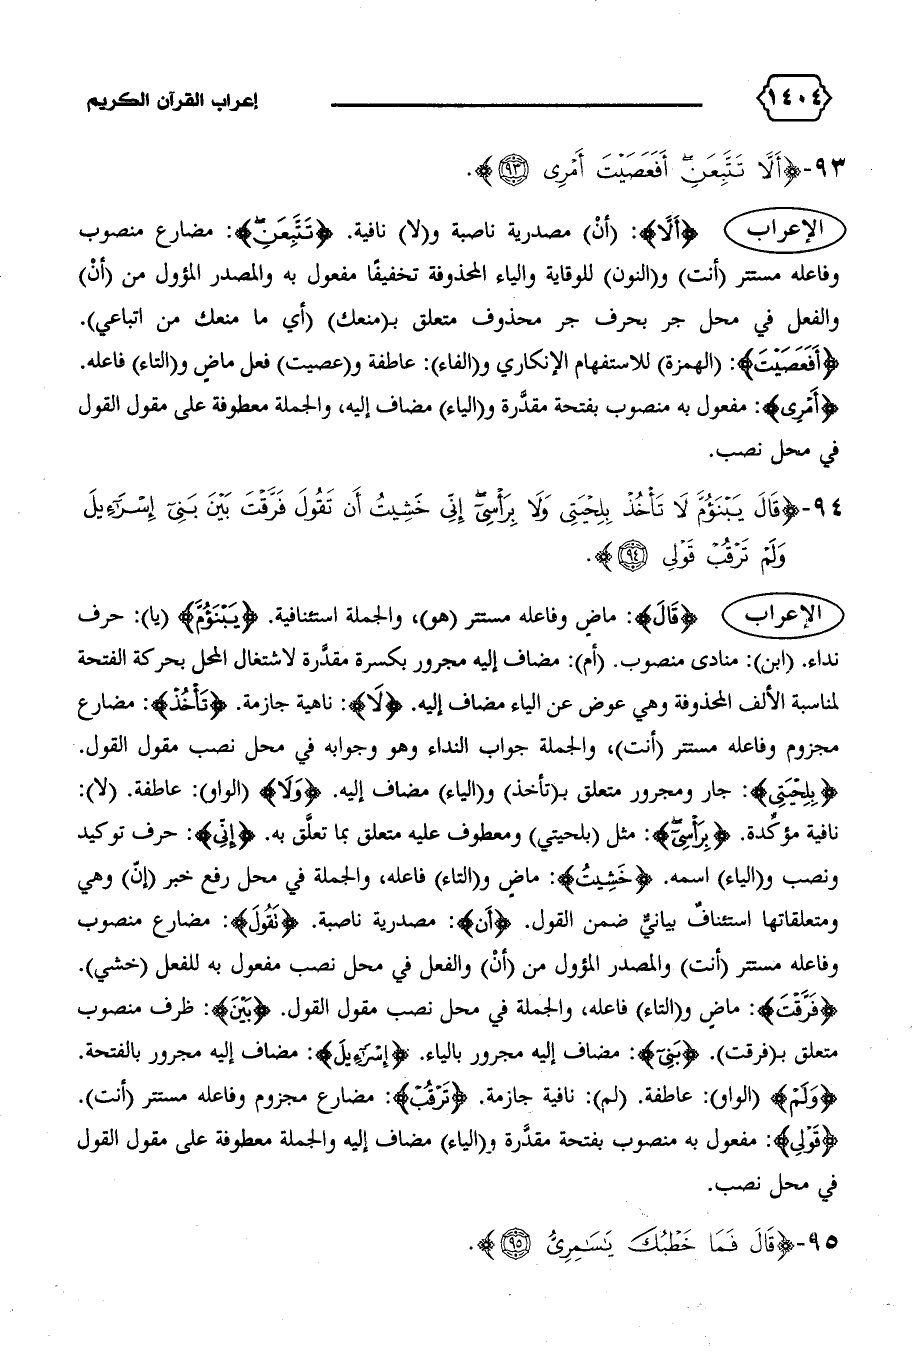 ١٤٠٤ إعراب القرآن الكريم
٩٣- ﴿أَلَّا تَتَّبِعَنِ ۖ أَفَعَصَيْتَ أَمْرِى ٩٣﴾.
الإعراب ﴿أَلَّا﴾: (أنْ) مصدرية ناصبة و(لا) نافية. ﴿تَتَّبِعَنِ ۖ﴾: مضارع منصوب
وفاعله مستتر (أنت) و(النون) للوقاية والياء المحذوفة تخفيفًا مفعول به والمصدر المؤول من (أنْ)
والفعل في محل جر بحرف جر محذوف متعلق بـ(منعك) (أي ما منعك من اتباعي).
﴿أَفَعَصَيْتَ﴾: (الهمزة) للاستفهام الإنكاري و(الفاء): عاطفة و(عصيت) فعل ماضٍ و(التاء) فاعله.
﴿أَمْرِى﴾: مفعول به منصوب بفتحة مقدَّرة و(الياء) مضاف إليه، والجملة معطوفة على مقول القول
في محل نصب.
٩٤- ﴿قَالَ يَبْنَؤُمَّ لَا تَأْخُذْ بِلِحْيَتِى وَلَا بِرَأْسِىٓ ۖ إِنِّى خَشِيتُ أَن تَقُولَ فَرَّقْتَ بَيْنَ بَنِىٓ إِسْرَٰٓءِيلَ
وَلَمْ تَرْقُبْ قَوْلِى ٩٤﴾.
الإعراب ﴿قَالَ﴾: ماضٍ وفاعله مستتر (هو)، والجملة استئنافية. ﴿يَبْنَؤُمَّ﴾ (يا): حرف
نداء. (ابن): منادى منصوب. (أم): مضاف إليه مجرور بكسرة مقدَّرة لاشتغال المحل بحركة الفتحة
لمناسبة الألف المحذوفة وهي عوض عن الياء مضاف إليه. ﴿لَا﴾: ناهية جازمة. ﴿تَأْخُذْ﴾: مضارع
مجزوم وفاعله مستتر (أنت)، والجملة جواب النداء وهو وجوابه في محل نصب مقول القول.
﴿بِلِحْيَتِى﴾: جار ومجرور متعلق بـ(تأخذ) و(الياء) مضاف إليه. ﴿وَلَا﴾ (الواو): عاطفة. (لا):
نافية مؤكِّدة. ﴿بِرَأْسِىٓ ۖ﴾: مثل (بلحيتي) ومعطوف عليه متعلق بما تعلَّق به. ﴿إِنِّى﴾: حرف توكيد
ونصب و(الياء) اسمه. ﴿خَشِيتُ﴾: ماضٍ و(التاء) فاعله، والجملة في محل رفع خبر (إنّ) وهي
ومتعلقاتها استئنافٌ بيانيٌّ ضمن القول. ﴿أَن﴾: مصدرية ناصبة. ﴿تَقُولَ﴾: مضارع منصوب
وفاعله مستتر (أنت) والمصدر المؤول من (أنْ) والفعل في محل نصب مفعول به للفعل (خشي).
﴿فَرَّقْتَ﴾: ماضٍ و(التاء) فاعله، والجملة في محل نصب مقول القول. ﴿بَيْنَ﴾: ظرف منصوب
متعلق بـ(فرقت). ﴿بَنِىٓ﴾: مضاف إليه مجرور بالياء. ﴿إِسْرَٰٓءِيلَ﴾: مضاف إليه مجرور بالفتحة.
﴿وَلَمْ﴾ (الواو): عاطفة. (لم): نافية جازمة. ﴿تَرْقُبْ﴾: مضارع مجزوم وفاعله مستتر (أنت).
﴿قَوْلِى﴾: مفعول به منصوب بفتحة مقدَّرة و(الياء) مضاف إليه والجملة معطوفة على مقول القول
في محل نصب.
٩٥- ﴿قَالَ فَمَا خَطْبُكَ يَٰسَٰمِرِىُّ ٩٥﴾.